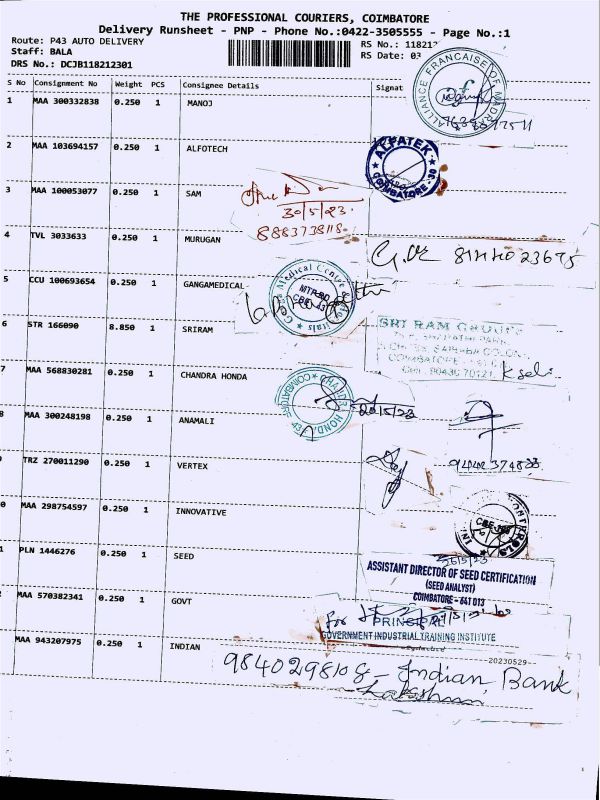 THE PROFESSIONAL COURIERS, COIMBATORE
Delivery Runsheet - PNP - Phone No.:0422-3505555 - Page No.:1
Route: P43 AUTO DELIVERY RS No.: 11821
Staff: BALA RS Date: 03
DRS No.: DCJB118212301
S No Consignment No Weight PCS Consignee Details Signat
ALLIANCE FRANCAISE OF MADRAS
af
1 MAA 300332838 0.250 1 MANOJ
2 MAA 103694157 0.250 1 ALFOTECH
ALFATEK
COIMBATORE-30
3 MAA 100053077 0.250 1 SAM
30/5/23
8883738118
4 TVL 3033633 0.250 1 MURUGAN
5 CCU 100693654 0.250 1 GANGAMEDICAL
Medical Centre &
MTP RD
CBE-43
6 STR 166090 8.850 1 SRIRAM
SRI RAM GROUPS
SAIBABA COLONY
COIMBATORE
Cell : 90430 70121
7 MAA 568830281 0.250 1 CHANDRA HONDA
COIMBATORE
20/5/23
8 MAA 300248198 0.250 1 ANAMALI
TRZ 270011290 0.250 1 VERTEX
0 MAA 298754597 0.250 1 INNOVATIVE
1 PLN 1446276 0.250 1 SEED
26/5/23
ASSISTANT DIRECTOR OF SEED CERTIFICATION
(SEED ANALYST)
COIMBATORE - 641 013
MAA 570382341 0.250 1 GOVT
For
PRINCIPAL
GOVERNMENT INDUSTRIAL TRAINING INSTITUTE
20230529
MAA 943207975 0.250 1 INDIAN
9840298108 - Indian Bank